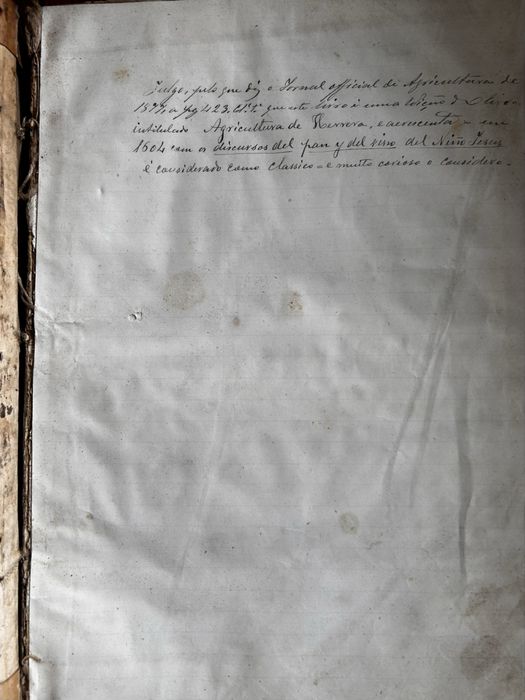 Julgo, pelo que diz o Jornal official de Agricultura de
1877, a pag 423, que este livro é uma edição d
intitulado Agricultura de Herrera, e accrescenta em
1604 com os discursos del pan y del vino del Niño Jesus
é considerado como classico e muito curioso o considero.